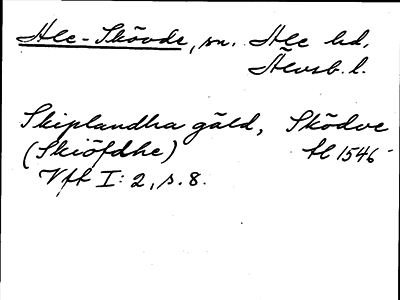 Ale-Skövde, sn. Ale hd,
Älvsb. l.
Skiplandha gäld, Sködve
(Skiöfdhe) tl 1546
Vft I: 2, s. 8.